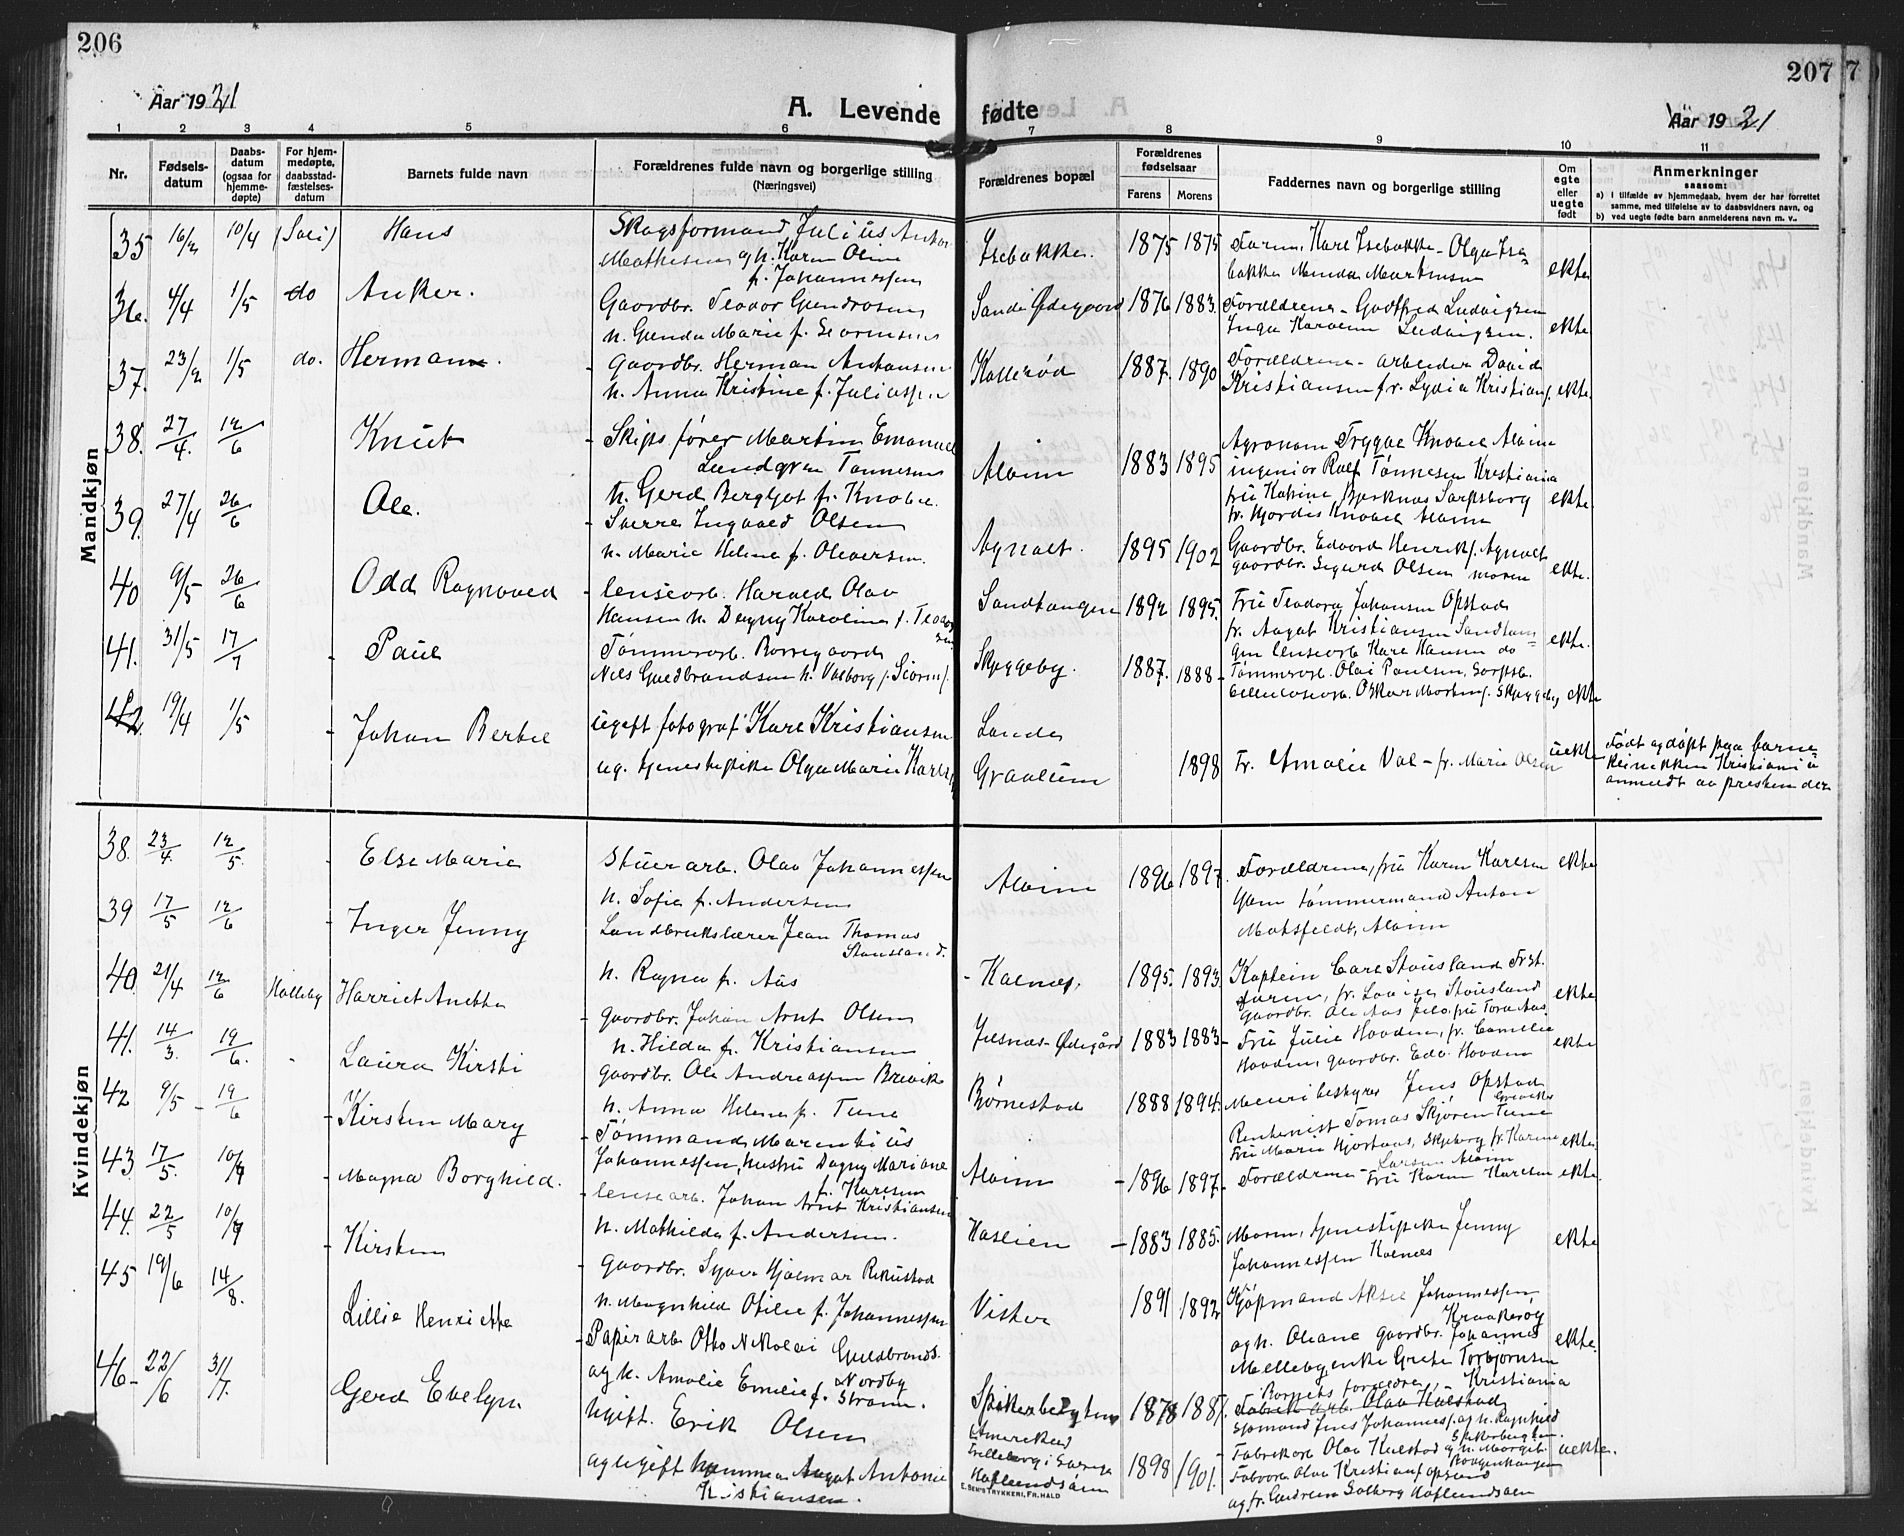 206
207
Aar 1921
A. Levende fødte
Aar 1921
1 2 3 4 5 6 7 8 9 10 11
Nr.
Fødsels-
datum
Daabs-
datum
(ogsaa for
hjemme-
døpte)
For hjem-
medøpte,
daabsstad-
fæstelses-
datum
Barnets fulde navn
Forældrenes fulde navn og borgerlige stilling
(Næringsvei)
Forældrenes bopæl
Forældrenes
fødselsaar
Farens Morens
Faddernes navn og borgerlige stilling
Om
egte
eller
uegte
født
Anmerkninger
saasom:
a) i tilfælde av hjemmedaab, hvem der har forrettet
samme, med tilføielse av to daabsvidners navn, og
b) ved uegte fødte barn anmelderens navn m. v..
Mandkjøn
35 16/2 10/4 (Soli) Hans
Skogsformand Julius Anton
Mathisen og h. Karen Oline
f. Johannessen
Isebakke. 1875 1875
Faren, Kare Isebakke - Olga Ise-
bakke Minda Martinsen
ekte
36. 4/4 1/5 do Anker.
Gaardbr. Teodor Gundrosen
h. Gunda Marie f. Sørensen
Sande Ødegaard 1876 1883.
Forældrene - Godtfred Ludvigsen
Inga Karoline Ludvigsen.
ekte
37. 23/2 1/5 do. Herman.
Gaardbr. Herman Antonsen
h. Anna Kristine f. Juliussen
Kallerød 1887. 1890
Forældrene - arbeider David
Kristiansen fr. Lydia Kristians.
ekte.
38. 27/4. 12/6 Knut
- Skips fører Martin Emanuel
Lundgren Tønnesen
h. Gerd Bergljot f. Knobel.
Alvim 1883 1895
Agronom Trygve Knobel Alvim
ingeniør Rolf Tønnesen Kristiania
fru Katrine Bjerknes Sarpsborg
fr. Hjordis Knobel Alvim
ekte.
39. 27/4 26/6 Ole.
- Sverre Ingvald Olsen
h. Marie Helene f. Oliversen.
Agnalt. 1895 1902
Gaardbr. Edvard Henriks. Agnalt
gaardbr. Sigurd Olsen moren
ekte.
40 9/5 26/6 Odd Ragnvald
- lensearb. Harald Olav
Hansen h. Dagny Karoline f. Teodorsen
Sandtangen 1892 1895.
Fru Teodora Johansen Opstad
fr. Aagot Kristiansen Sandtan-
gen lensearb Kare Hansen do
ekte.
41. 31/5 17/7 - Paul
Tømmerarb. Borregaard
Nils Guldbrandsen h. Valborg f. Sørens.
Skyggeby. 1887. 1888-
Tømmerarb. Olai Paulsen, Sarpsb.
cellulosearb. Oskar Martins. Skyggeby
ekte
42 19/4 1/5 - Johan Bertel
ugift fotograf Kare Kristiansen
ug. tjenestepike Olga Marie Karls.
Lande
Graalum 1898
Fr. Amalie Vol - fr. Marie Olsen
uekte
Født og døpt paa barne-
klinikken Kristiania
anmeldt av presten der
Kvindekjøn
38. 23/4. 12/5. - Else Marie
Stuerarb. Olav Johannessen
h. Sofie f. Andersen
Alvim 1896 1897.
Forældrene, fru Karen Karlsen
Glem tømmermand Anton
Matsfeldt, Alvim
ekte
39 17/5 12/6 - Inger Jenny
Landbrukslærer Jean Thomas
Stousland.
h. Ragna f. Aas
- Kalnes, 1895. 1893.
Kaptein Carl Stousland Frst.
faren, fr. Lovise Stousland
gaardbr. Ole Aas fru Tora Aas
ekte
40. 21/4 12/6 Holleby Harriet Anette
gaardbr. Johan Arnt Olsen
h. Hilda f. Kristiansen
Jelsnes-Ødegård 1883 1883-
Fru Julie Hovden, fr. Camilla
Hovden, gaardbr. Edv. Hovden
ekte
41. 14/3. 19/6. - Laura Kirsti
gaardbr. Ole Andreassen Brevik
h. Anna Helene f. Tune
Børnestad 1888 1894.
Meieribestyrer Jens Opstad
Rentenist Tomas Skjøren Tune
Fru Marie Hjortaas, Skjeberg fr. Karen
Larsen Alvim
ekte.
42 9/5 - 19/6 - Kirsten Mary
- Tømmand Marentius
Johannessen, hustru Dagny Mariane
f. Karlsen
Alvim - 1896 1897-
Forældrene - Fru Karen Karlsen
ekte.
43. 17/5. 10/7 - Magna Borghild.
- lensearb. Johan Arnt Kristiansen
h. Mathilde f. Andersen.
Haslien - 1883 1885.
Moren, tjenestepike Jenny
Johannessen Kalnes
ekte
44. 22/5 10/7 - Kirsten
- gaardbr. Syver Hjalmar Rekustad
h. Magnhild Otilie f. Johannessen
Vister 1891 1892
Kjøpmand Aksel Johannessen
Kraakerøy
og h. Oliane gaardbr. Johannes
Mellebyenke Grete Torbjørnsen
Kristiania
ekte.
45 19/6 14/8. Lillie Henriette
- Papirarb Otto Nikolai Guldbrands.
Nordby
og h. Amalie Emelie f. Strøm.
Spikerbergten 1878 1881.
Barnets forældre,
Fabrik arb. Olav Kulstad
Sjømand Jens Johannes. og h. Ragnhild
Spikerbergten.
46- 22/6 31/7. Gerd Evelyn
Ugift. Erik Olsen
og ugift Aagot Antonie
Kristiansen.
Amerika
Trelleborg i Sverige
Hafslundsøen
1898 1901.
- Fabrikarb Olav Kulstad og h. Margit
Fabrarb. Olav Kristians. Opsund
og fr. Gudrun Solberg Hafslundsøen
uekte.
E. SEM'S TRYKKERI, FR.HALD